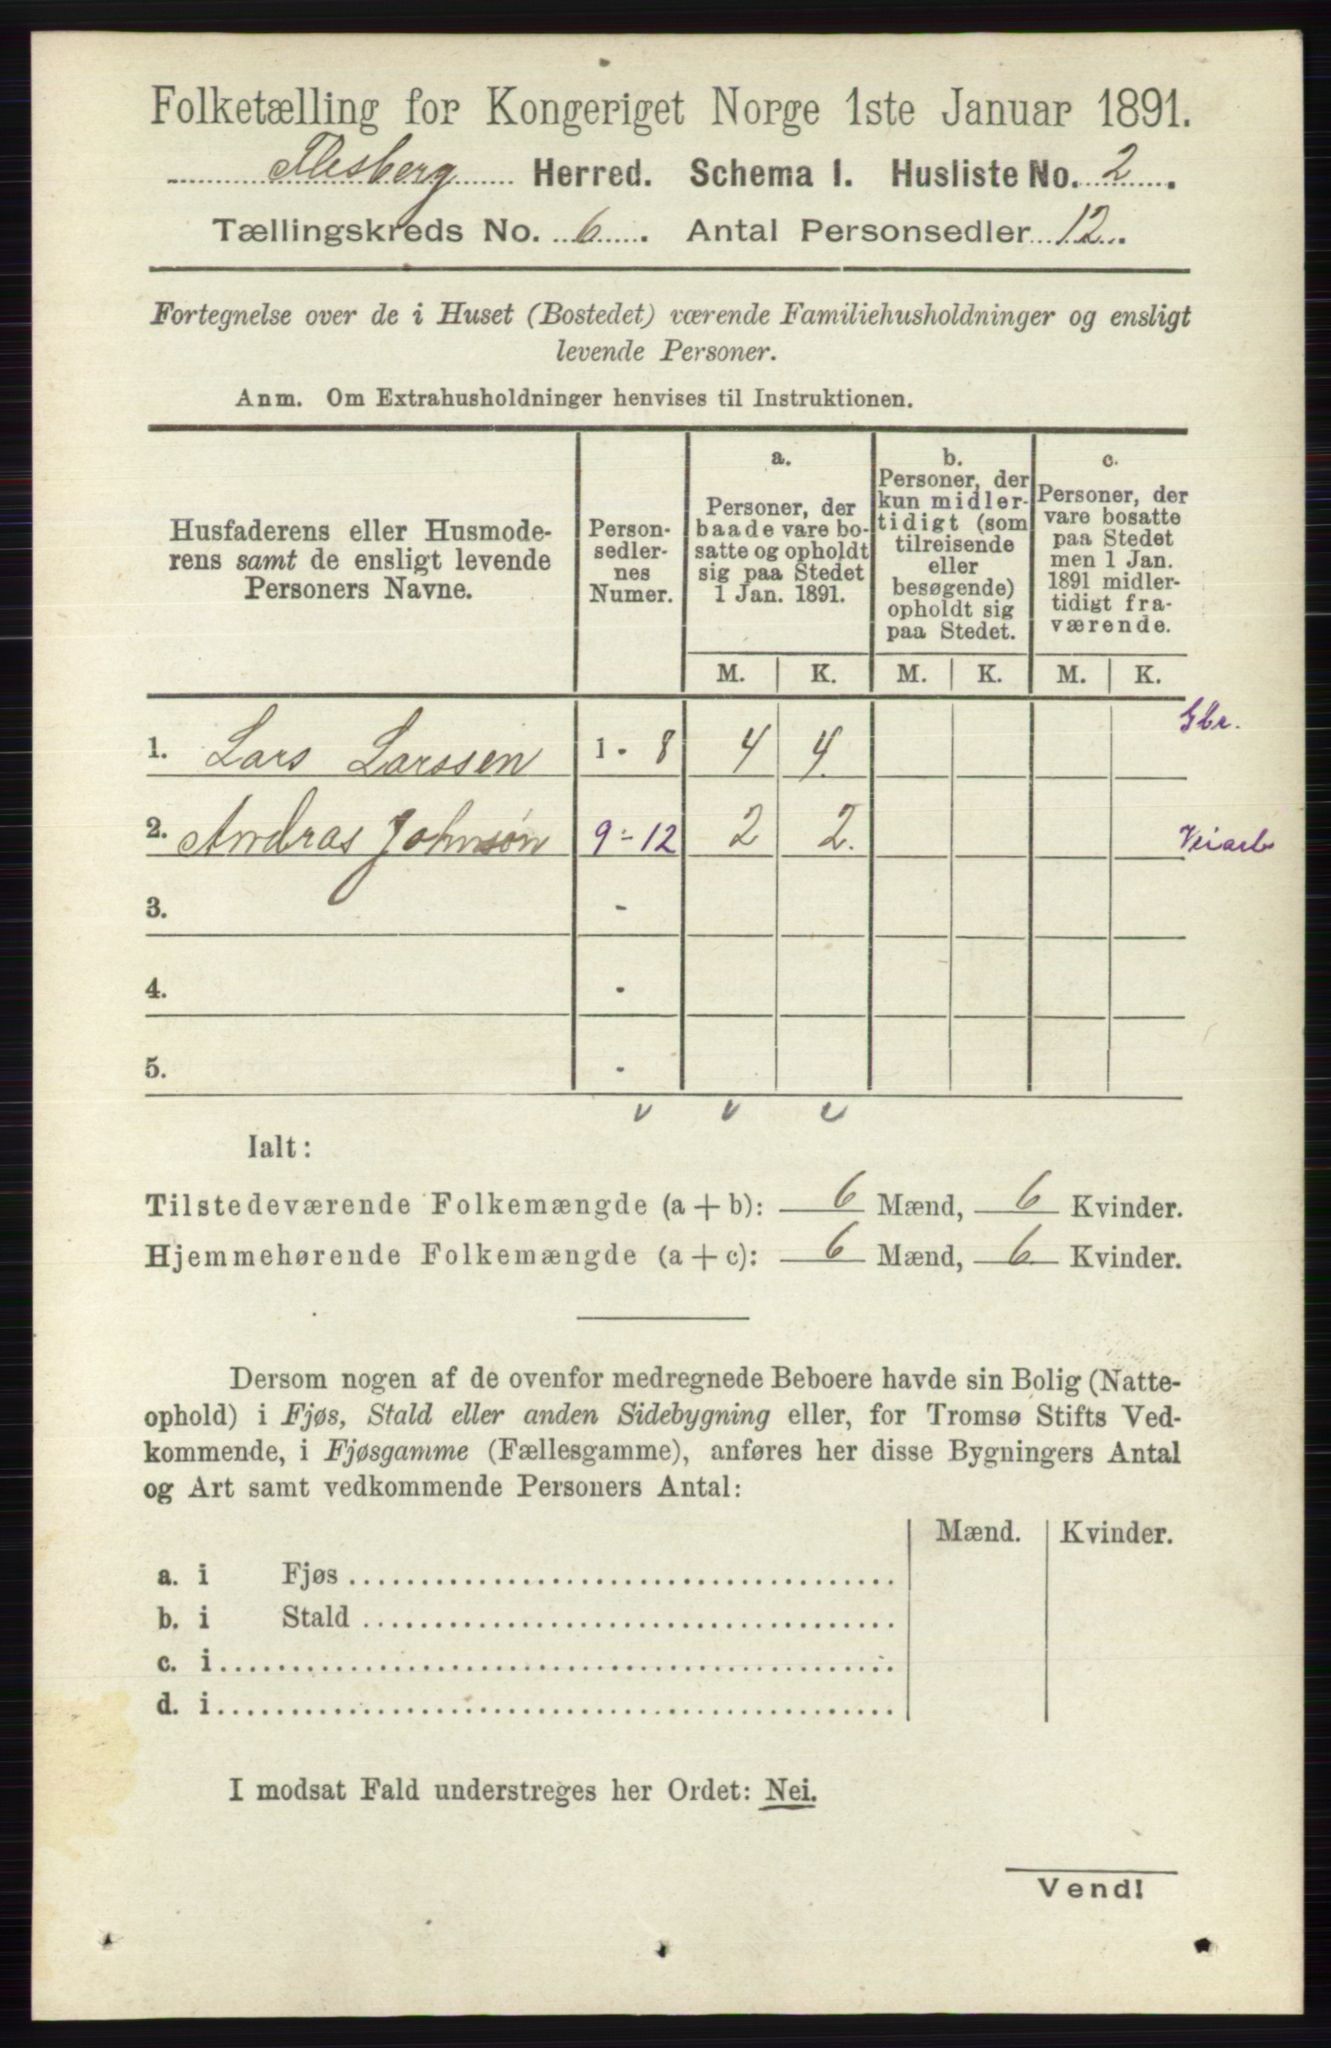 Folketælling for Kongeriget Norge 1ste Januar 1891.
Flesberg Herred. Schema I. Husliste No. 2.
Tællingskreds No. 6. Antal Personsedler 12.
Fortegnelse over de i Huset (Bostedet) værende Familiehusholdninger og ensligt
levende Personer.
Anm. Om Extrahusholdninger henvises til Instruktionen.
Husfaderens eller Husmode-
rens samt de ensligt levende
Personers Navne.
Person-
sedler-
nes
Numer.
a.
Personer, der
baade vare bo-
satte og opholdt
sig paa Stedet
1 Jan. 1891.
b.
Personer, der
kun midler-
tidigt (som
tilreisende
eller
besøgende)
opholdt sig
paa Stedet.
c.
Personer, der
vare bosatte
paa Stedet
men 1 Jan.
1891 midler-
tidigt fra-
værende.
M. K. M. K. M. K.
1. Lars Larssen 1 - 8 4 4 Gbr.
2. Andras Johnsøn 9 - 12 2 2. Veiarb
3. -
4. -
5. -
v v v
Ialt:
Tilstedeværende Folkemængde (a + b): 6 Mænd, 6 Kvinder.
Hjemmehørende Folkemængde (a + c): 6 Mænd, 6 Kvinder.
Dersom nogen af de ovenfor medregnede Beboere havde sin Bolig (Natte-
ophold) i Fjøs, Stald eller anden Sidebygning eller, for Tromsø Stifts Ved-
kommende, i Fjøsgamme (Fællesgamme), anføres her disse Bygningers Antal
og Art samt vedkommende Personers Antal:
Mænd. Kvinder.
a. i Fjøs
b. i Stald
c. i
d. i
I modsat Fald understreges her Ordet: Nei.
Vend!